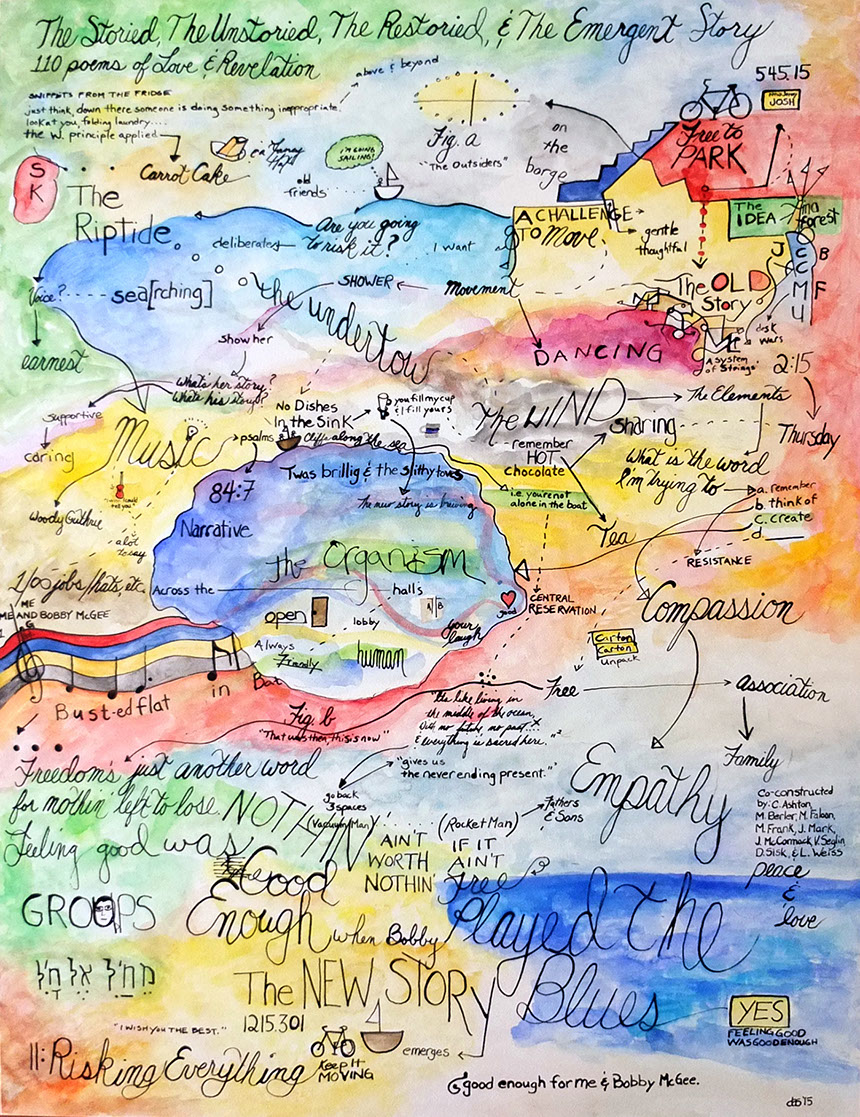 The Storied, The Unstoried, The Restoried, & The Emergent Story
110 poems of Love & Revelation
above & beyond
545.15
SNIPPETS FROM THE FRIDGE
just think, down there someone is doing something inappropriate.
look at you, folding laundry....
the W. principle applied
JOSH
Fig. a
"The Outsiders"
on
the
barge
Free to
PARK
I'M GOING
SAILING!
Carrot Cake
S
K
old
friends
The
Riptide
Are you going
to risk it?
deliberate
I want
A CHALLENGE
TO Move
gentle
thoughtful
The
IDEA
in a
forest
J
B
C
C
M
F
4
Voice?
sea[rching]
the undertow
SHOWER
Movement
The OLD
Story
Show her
DANCING
disk
wars
A system
of Strings
2:15
earnest
What's her story?
What's his story?
Supportive
caring
No Dishes
In the Sink
you fill my cup
& I fill yours
The WIND
The Elements
Sharing
Thursday
Music
psalms
Cliffs along the sea
remember
HOT
chocolate
What is the word
I'm trying to
a. remember
b. think of
c. create
d. ___
'Twas brillig & the slithy toves
84:7
The new story is brewing
i.e. you're not
alone in the boat
Woody Guthrie
a lot
to say
Narrative
Tea
RESISTANCE
the Organism
1,100 jobs/hats, etc.
Across the
halls
good
CENTRAL
RESERVATION
Compassion
ME
ME AND BOBBY McGEE
open
lobby
A B
your
laugh
Always
Friendly
human
Carton
Carton
Unpack
Busted flat in Bat
Fig. b
"That was then, this is now"
"It's like living in
the middle of the ocean,
With no future, no past...
& everything is sacred here."2
Free
association
"gives us
the never ending present."
Family
Freedom's just another word
for nothin' left to lose.
NOTHIN
go back
3 spaces
(Vacuum Man)
(Rocket Man)
Fathers
& Sons
Empathy
Co-constructed
by: C. Ashton,
M. Berler, M. Fabean,
M. Frank, J. Mark,
J. McCormack, V. Seglin,
D. Sisk, & L. Weiss
Feeling good was
AIN'T
WORTH
NOTHIN'
IF IT
AIN'T
Free
peace
&
love
Good
Enough when Bobby Played the
Blues
GROUPS
מִחַיִל אֶל חָיִל
The NEW STORY
1215.301
YES
FEELING GOOD
WAS GOOD ENOUGH
"I WISH YOU THE BEST."
11: Risking Everything
Keep It
MOVING
emerges
good enough for me & Bobby McGee.
dbs 15